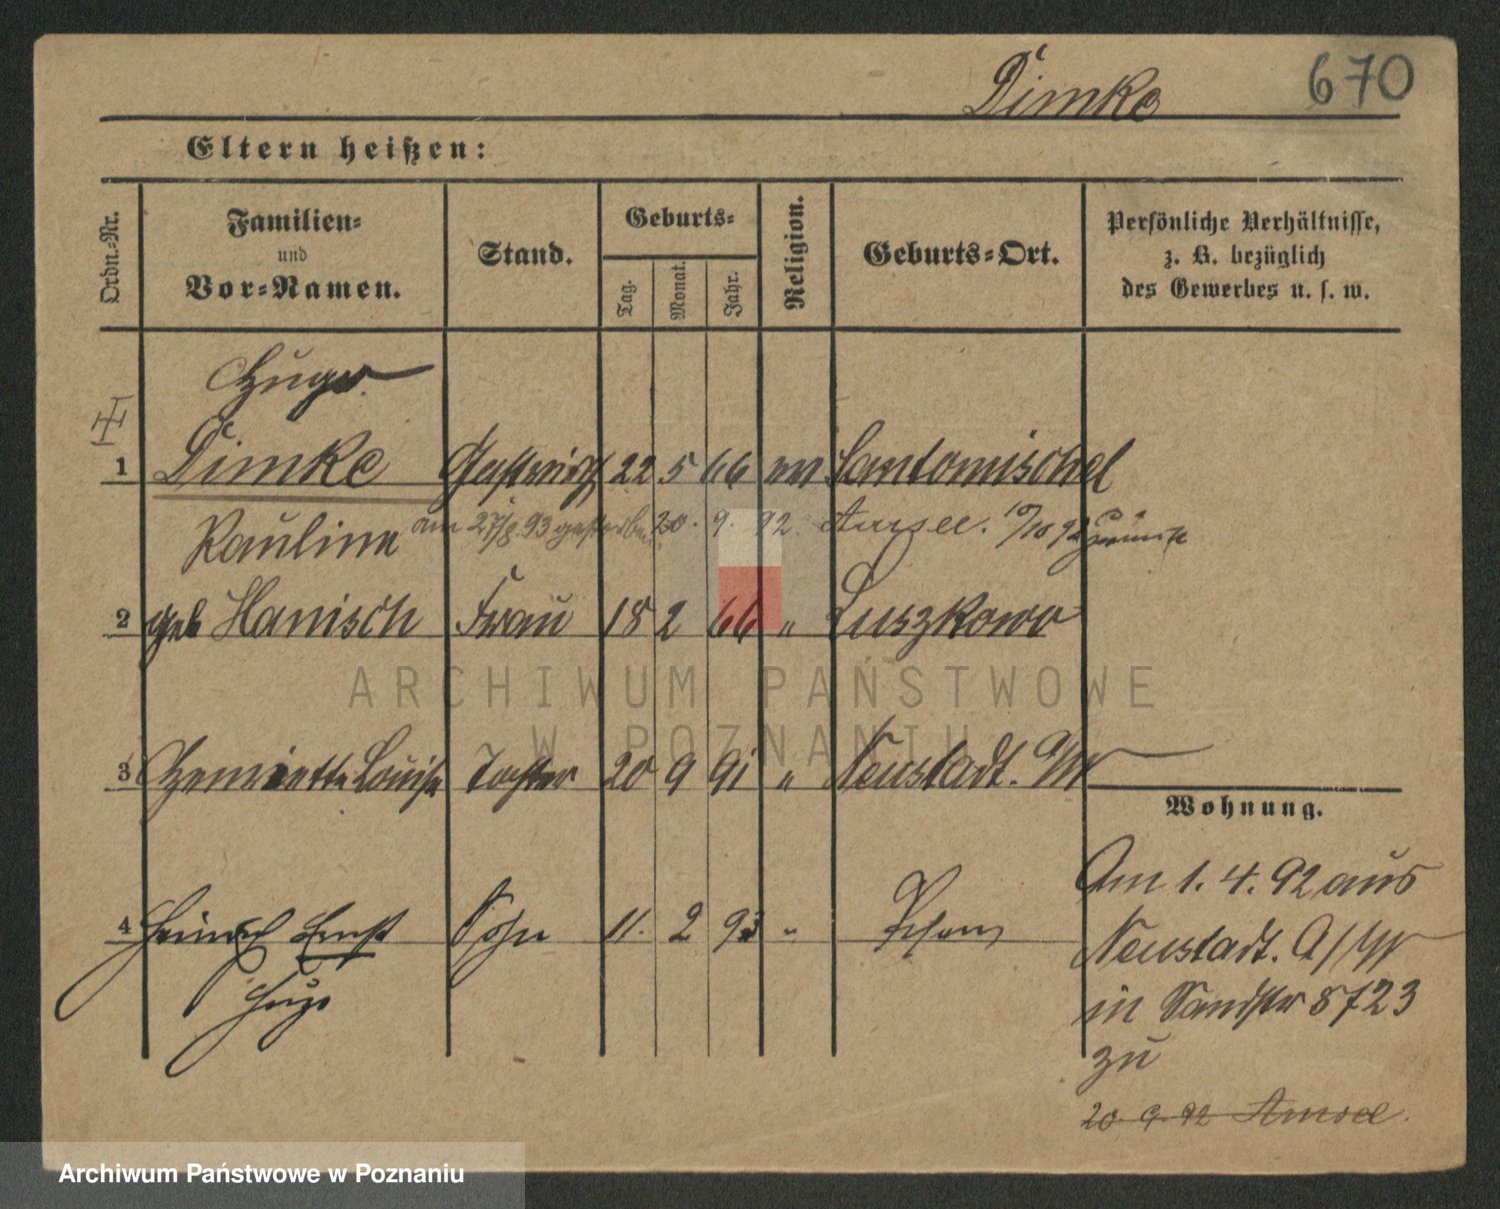 Dimke 670
Eltern heißen:
Ordn.-Nr.
Familien-
und
Vor-Namen.
Stand.
Geburts-
Tag.
Monat.
Jahr.
Religion.
Geburts-Ort.
Persönliche Verhältnisse,
z. B. bezüglich
des Gewerbes u. s. w.
Hugo
1 Dimke Gastwirth 22 5 66 ev Santomischel
am 27/8.93 gestorben 20. 9. 92. 10/10 92 zurück
Pauline
2 geb Hanisch Frau 18 2 66 " Luszkowo
3 Henriette Louise Tochter 20 9 91 " Neustadt. a/W
4 Heinrich Ernst Sohn 11. 2 93 "
Hugo
Wohnung.
Am 1. 4. 92 aus
Neustadt. a/W
in Sandstr 8 723
zu
20. 9. 92
ARCHIWUM PAŃSTWOWE
W POZNANIU
Archiwum Państwowe w Poznaniu